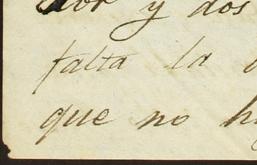 y dos
falta la
que no